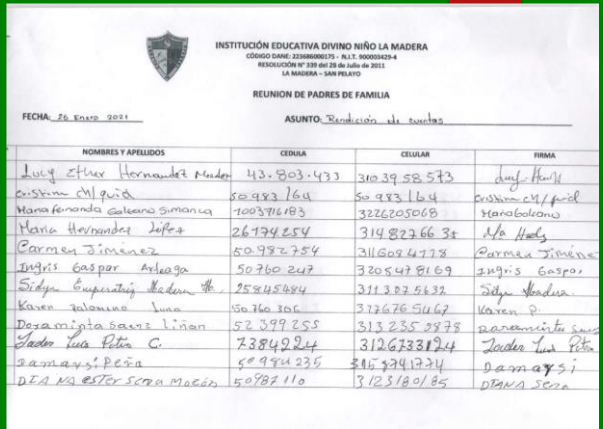 INSTITUCIÓN EDUCATIVA DIVINO NIÑO LA MADERA
CÓDIGO DANE: 223686000175 - N.I.T. 900003429-4
RESOLUCIÓN N° 339 del 28 de Julio de 2011
LA MADERA – SAN PELAYO
REUNION DE PADRES DE FAMILIA
FECHA: 26 Enero 2021 ASUNTO: Rendición de cuentas
NOMBRES Y APELLIDOS CEDULA CELULAR FIRMA
Lucy Ether Hernandez Mendez 43.803.433 3103958573
cristina 50983164 50983164 cristina
Maria fernanda Galeano Simanca 1003716183 3226205068
Maria Hernandez López 26174254
Carmen Jiménez 50.982754 Carmen Jiméne
Ingris Gaspar Arteaga 50760247 3205478169 Ingris Gaspar
Madera 25845484 3113275632 Madera
Karen Palomino Luna 50760306 3776765467 Karen P.
Doraminta Saenz Liñan 52399255 3132352878
Jader Luis Petro C. 7384224 3126733124 Luis Petro
Damarsi Peña 50984235 3158741774 Damarsi
DIANA ester Serpa 50987110 3123180185 DIANA Serpa